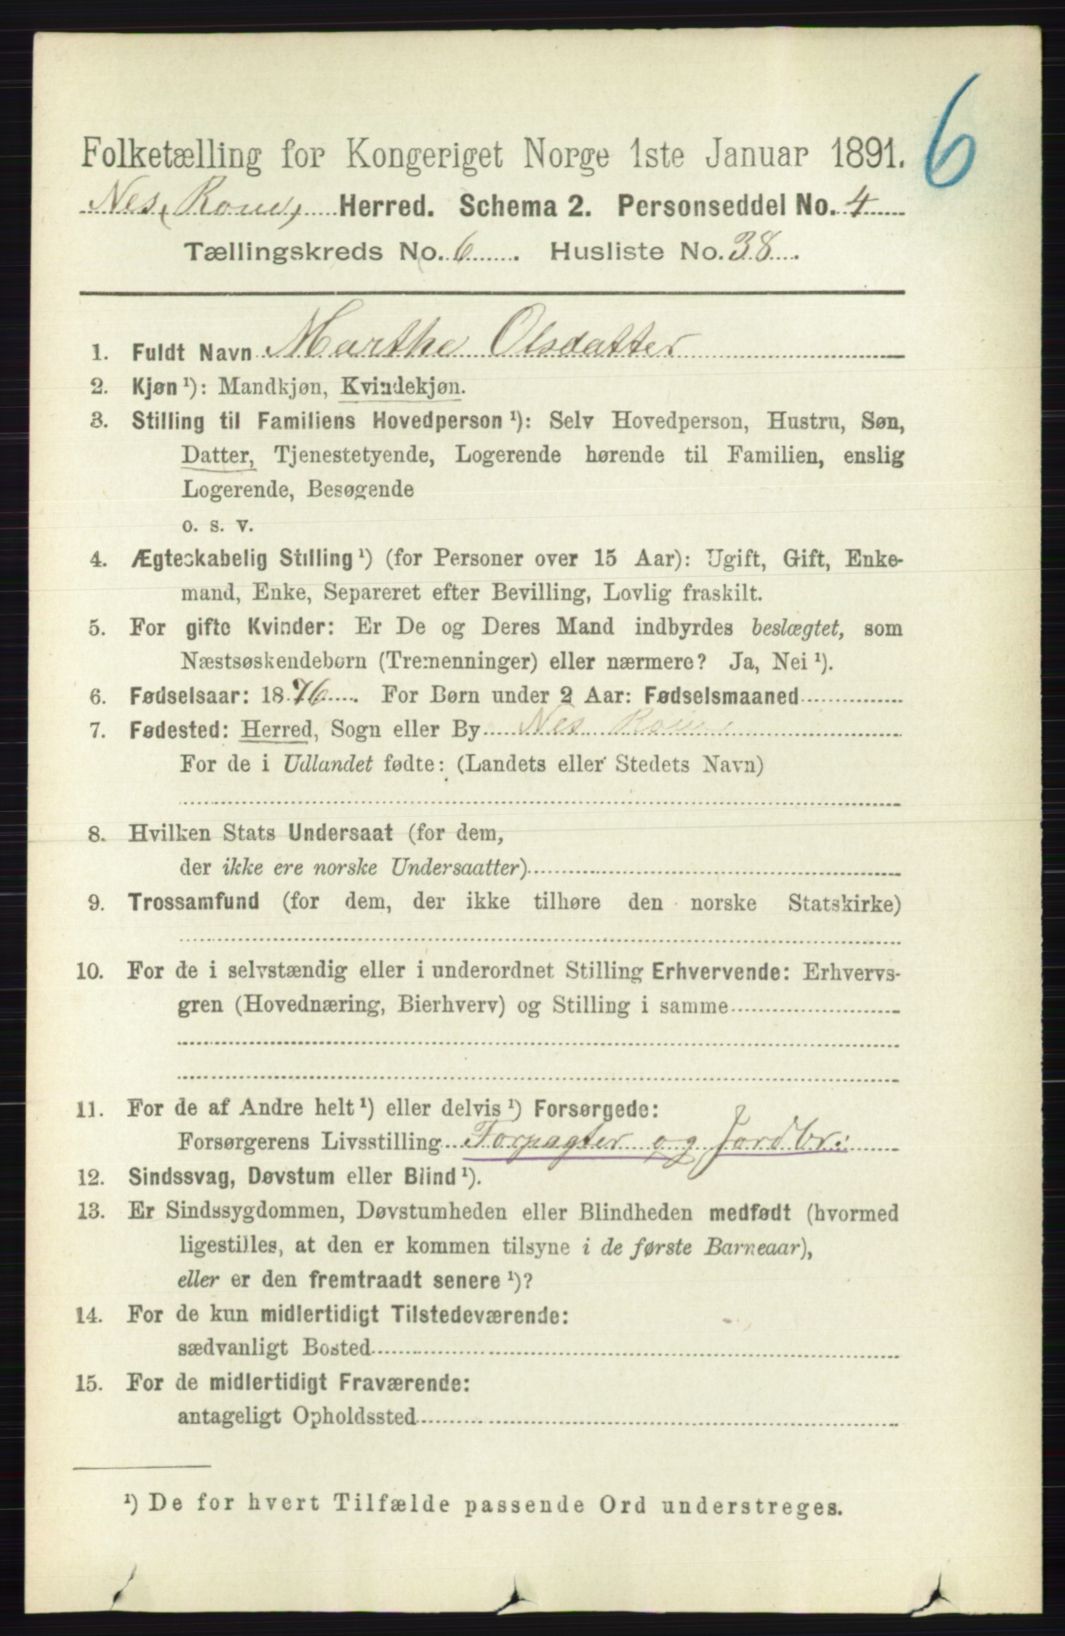 6
Folketælling for Kongeriget Norge 1ste Januar 1891.
Nes, (Rome) Herred. Schema 2. Personseddel No. 4
Tællingskreds No. 6. Husliste No. 38.
1. Fuldt Navn Marthe Olsdatter
2. Kjøn ¹): Mandkjøn, Kvindekjøn.
3. Stilling til Familiens Hovedperson ¹): Selv Hovedperson, Hustru, Søn,
Datter, Tjenestetyende, Logerende hørende til Familien, enslig
Logerende, Besøgende
o. s. v.
4. Ægteskabelig Stilling ¹) (for Personer over 15 Aar): Ugift, Gift, Enke-
mand, Enke, Separeret efter Bevilling, Lovlig fraskilt.
5. For gifte Kvinder: Er De og Deres Mand indbyrdes beslægtet, som
Næstsøskendebørn (Tremenninger) eller nærmere? Ja, Nei ¹).
6. Fødselsaar: 1876. For Børn under 2 Aar: Fødselsmaaned
7. Fødested: Herred, Sogn eller By Nes Rom.
For de i Udlandet fødte: (Landets eller Stedets Navn)
8. Hvilken Stats Undersaat (for dem,
der ikke ere norske Undersaatter)
9. Trossamfund (for dem, der ikke tilhøre den norske Statskirke)
10. For de i selvstændig eller i underordnet Stilling Erhvervende: Erhvervs-
gren (Hovednæring, Bierhverv) og Stilling i samme
11. For de af Andre helt ¹) eller delvis ¹) Forsørgede:
Forsørgerens Livsstilling Forpagter og Jordbr:
12. Sindssvag, Døvstum eller Blind ¹).
13. Er Sindssygdommen, Døvstumheden eller Blindheden medfødt (hvormed
ligestilles, at den er kommen tilsyne i de første Barneaar),
eller er den fremtraadt senere ¹)?
14. For de kun midlertidigt Tilstedeværende:
sædvanligt Bosted
15. For de midlertidigt Fraværende:
antageligt Opholdssted
¹) De for hvert Tilfælde passende Ord understreges.